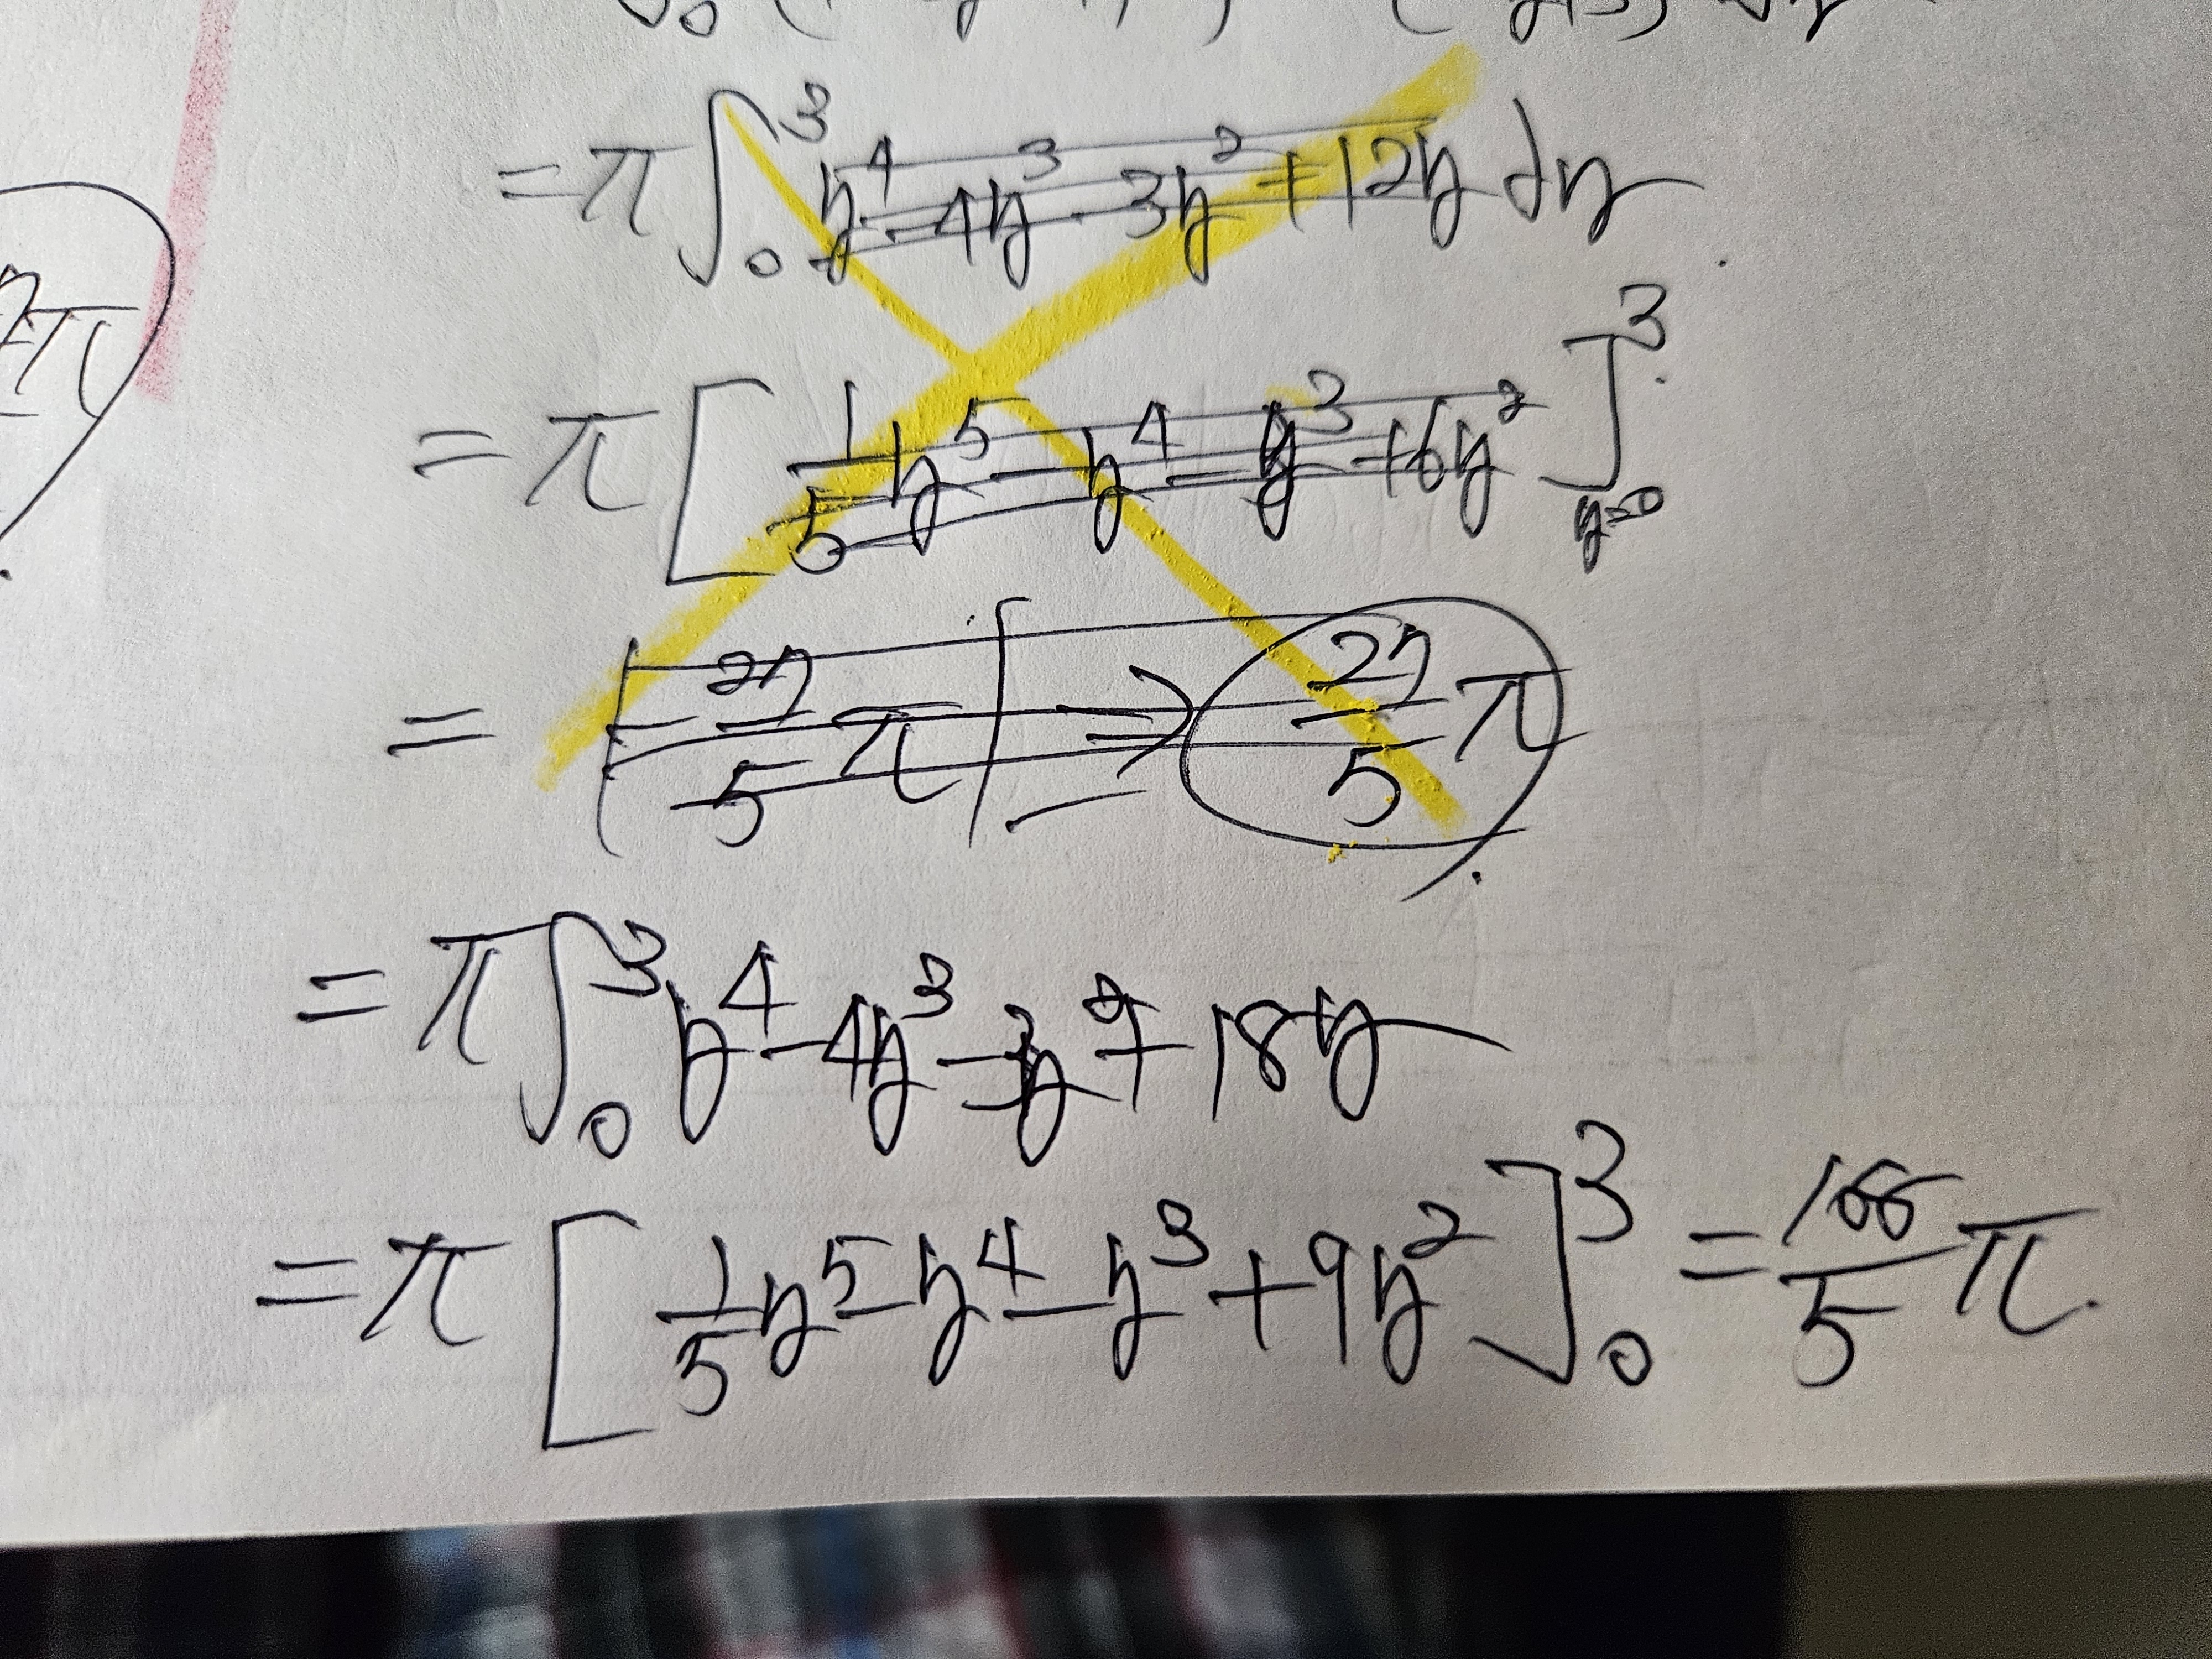 = π ∫₀³ y⁴ - 4y³ - 3y² + 12y dy
= π [ 1/5 y⁵ - y⁴ - y³ + 6y² ]³ y=0
= | - 27/5 π | ⇒ 27/5 π
= π ∫₀³ y⁴ - 4y³ - 3y² + 18y
= π [ 1/5 y⁵ - y⁴ - y³ + 9y² ]₀³ = /5 π.